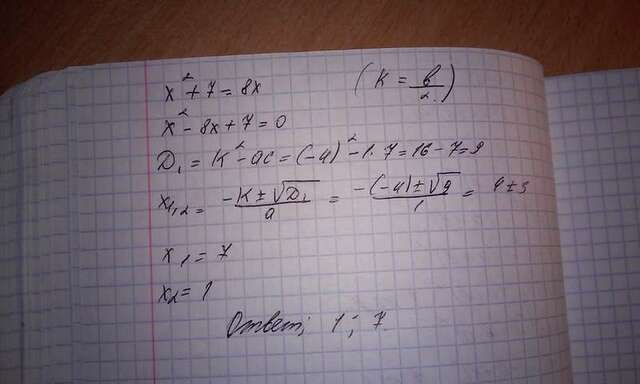 x² + 7 = 8x (K = в/2)
x² - 8x + 7 = 0
D₁ = K² - ac = (-4)² - 1·7 = 16 - 7 = 9
x₁,₂ = (-K ± √D₁)/a = (-(-4) ± √9)/1 = 4 ± 3
x₁ = 7
x₂ = 1
Ответ; 1; 7